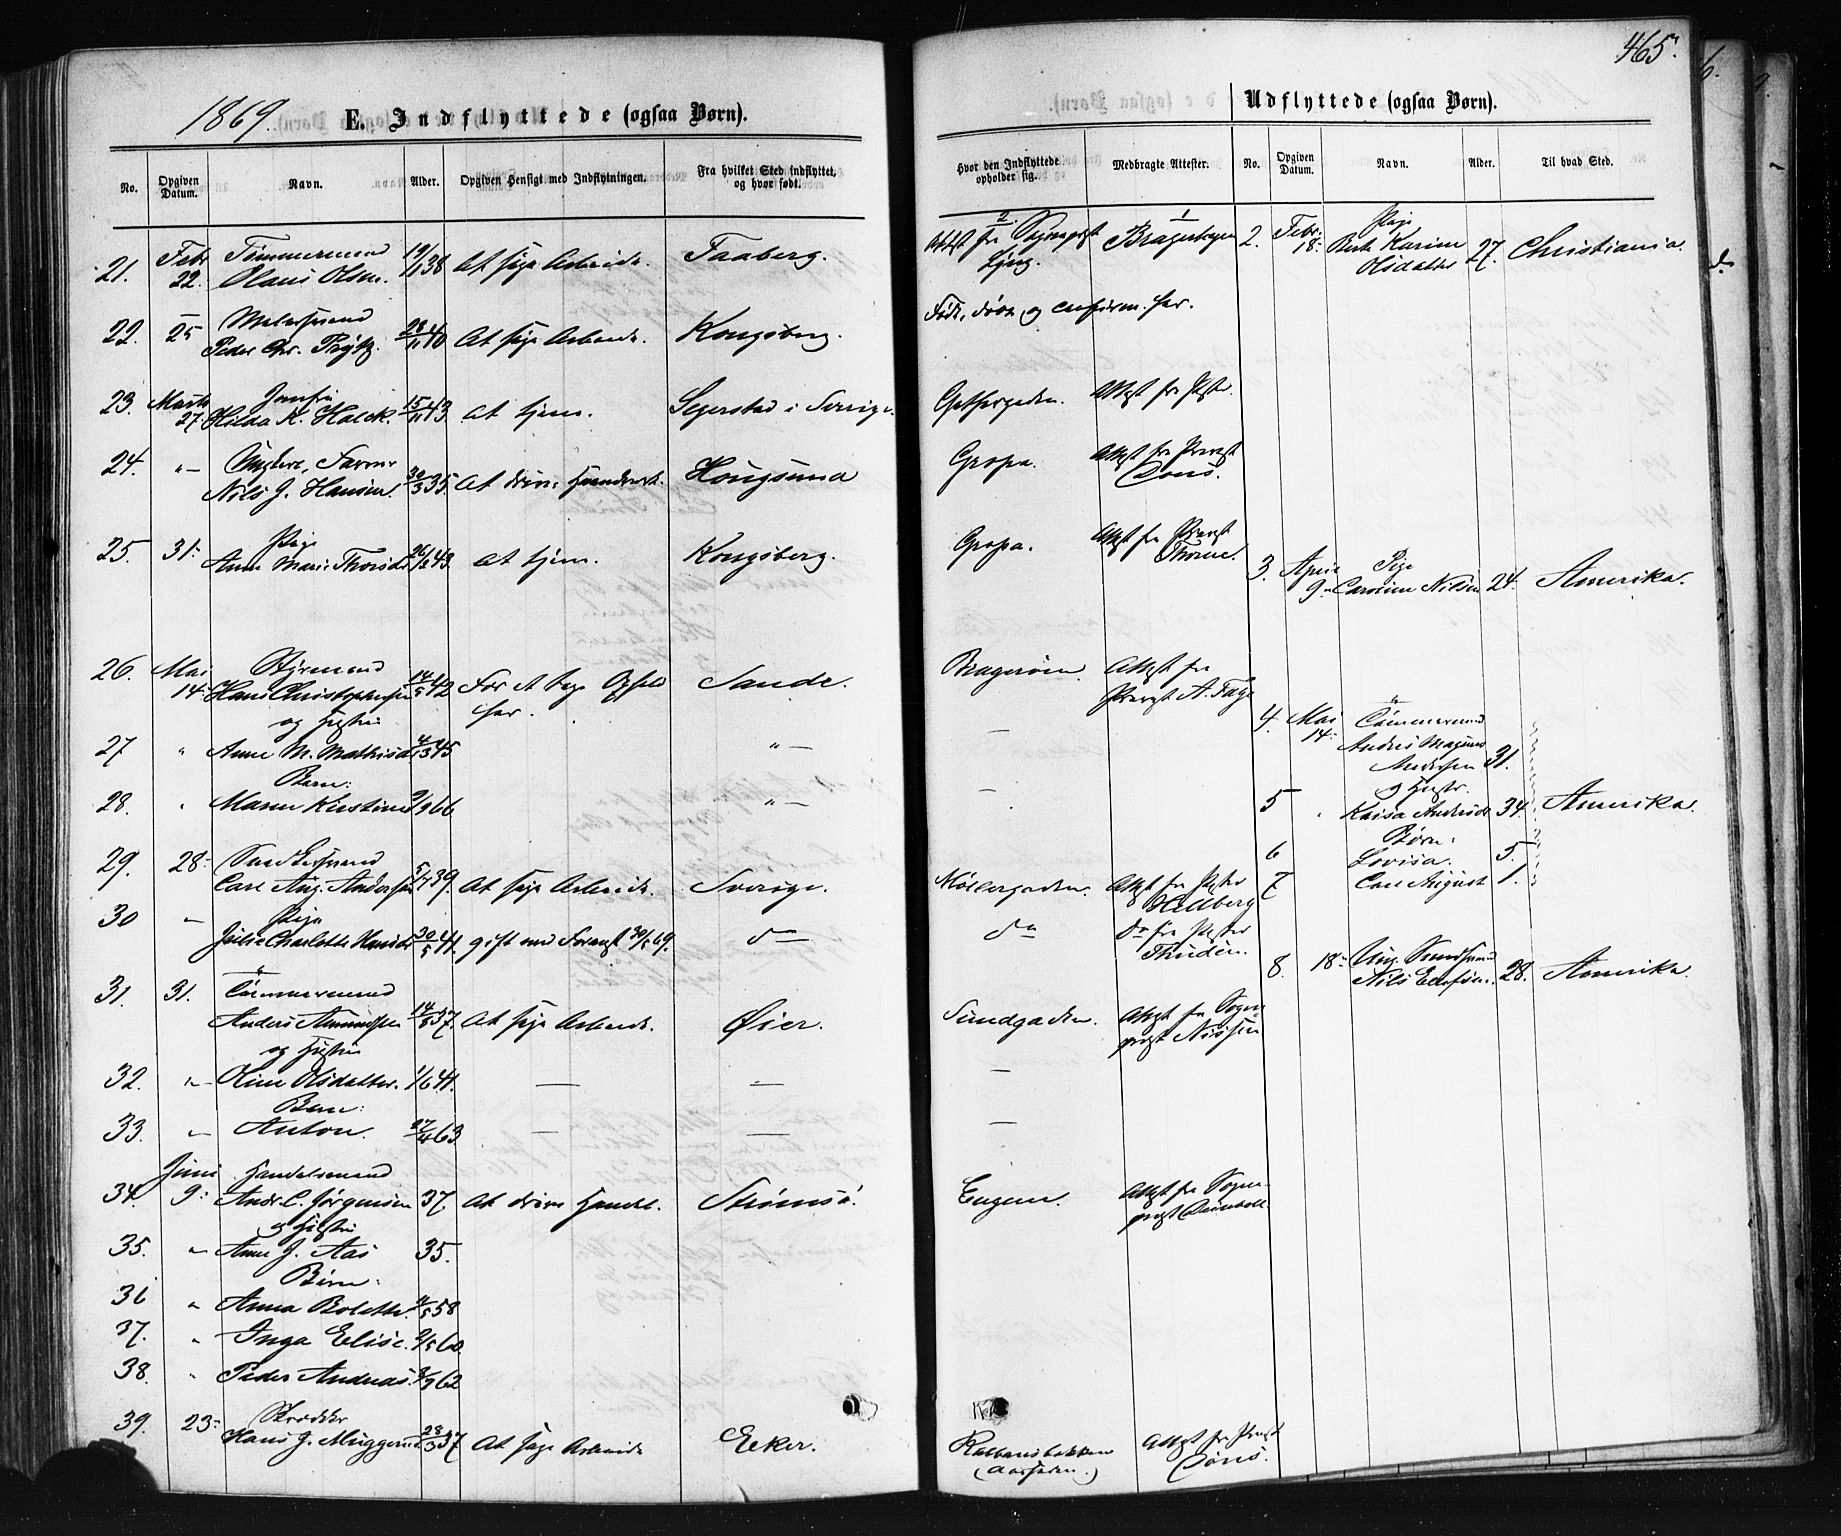 465.
1869
E. Indflyttede (ogsaa Børn).
No. Opgiven Datum. Navn. Alder. Opgiven Hensigt med Indflytningen. Fra hvilket Sted indflyttet, og hvor født.
21. Febr 22. Tømmermand Olaus Olsen. 19/11 38 At søge Arbeide. Faaberg.
22. 25 Malersvend Peder Chr. 28/11 40 At søge Arbeide. Kongsberg.
23. Marts 27 Jomfru Hilda K. 15/11 43. At tjene. Segerstad i Sverige.
24. " Farver Nils J. Hansen. 30/3 35. At drive Haandverk. Hougsund
25. 31. Pige Anne Marie Thorsdr 43. At tjene. Kongsberg.
26. Mai 14. Styrmand Hans Christophersen 14/5 42 For at søge Ophold her. Sande.
og Hustru
27 " Anne M. Mathisd 4/3 45 " —
Barn:
28. " Maren Kirstine 9/9 66 " —
29. 28. Carl Aug. Andersen 5/7 39. At søge Arbeide. Sverige.
30 " Pige Julie Charlotte Hansdr 30/5 41. gift med Forrige 30/5 69. do
31. 31. Tømmermand Anders Amundsen 14/5 37. At søge Arbeide. Øier.
og Hustru
32. " Oline Olsdatter. 1/6 41. — —
Barn:
33. " Anton. 27/4 63 — —
34. Juni 9. Handelsmand Andr. C. Jørgensen 37. At drive Handel. Strømsø.
og Hustru
35. " Anne J. Aas 35.
Børn:
36 " Anna Bolette. 58
37. " Inga Elise. 60.
38. " Peder Andreas. 62
39. 23. Skrædder Hans J. Muggerud 28/3 37 At søge Arbeide Eeker.
Udflyttede (ogsaa Børn).
Hvor den Indflyttede opholder sig. Medbragte Attester. No. Opgiven Datum. Navn. Alder. Til hvad Sted.
2. Attest fra Sognepræst 1 Bragerhagen 2. Febr. 18. Pige Berte Karine Olsdatter 27. Christiania.
Født, døbt og confirm. her.
Attest fra Præst.
Gropa. Attest fra Provst Tønis.
Gropa. Attest fra Provst Thorne.
3. April 9. Pige Caroline Nilsen 24. Amerika.
Bragerøen. Attest fra Provst A. Fage
4. Mai 14. Tømmermand Andres Magnus Andersen 31.
og Hustr.
5 " Kaisa Andersdr 34. Amerika.
Børn:
6 Lovisa. 5.
7 Carl August 1.
Møllergaden. Attest fra Præst Hellberg
do do fra Præst Thudén.
8. 18. Ung. Nils Elefsen. 28. Amerika.
Sundgaden. Attest fra Sognepræst Nissen
—
—
Engene. Attest fra Sognepræst
Attest fra Provst Tønis.